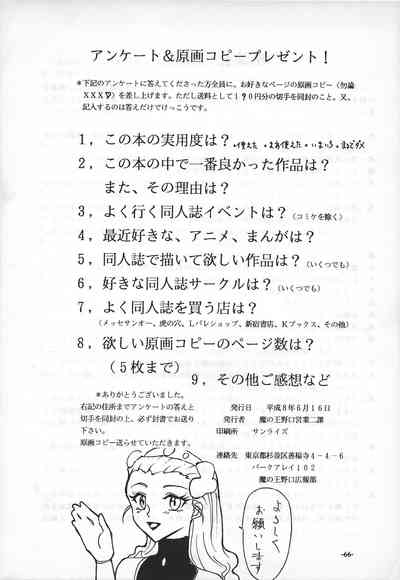 アンケート＆原画コピープレゼント！
＊下記のアンケートに答えてくださった方全員に、お好きなページの原画コピー（勿論
ＸＸＸ♡）を差し上げます。ただし送料として１９０円分の切手を同封のこと。又、
記入するのは答えだけでけっこうです。
１，この本の実用度は？・使えた ・まあ使えた・いまいち・まるでダメ
２，この本の中で一番良かった作品は？
また、その理由は？
３，よく行く同人誌イベントは？（コミケを除く）
４，最近好きな、アニメ、まんがは？
５，同人誌で描いて欲しい作品は？（いくつでも）
６，好きな同人誌サークルは？（いくつでも）
７，よく同人誌を買う店は？
（メッセサンオー、虎の穴、Ｌパレショップ、新宿書店、Ｋブックス、その他）
８，欲しい原画コピーのページ数は？
（５枚まで）
９，その他ご感想など
＊ありがとうございました。
右記の住所までアンケートの答えと
切手を同封の上、必ず封書でお送り
下さい。
原画コピー送らせていただきます。
発行日　平成８年６月１６日
発行　魔の王野口営業二課
印刷所　サンライズ
連絡先　東京都杉並区善福寺４－４－６
パークアレイ１０２
魔の王野口広報部
よろしく
お願いします
-66-